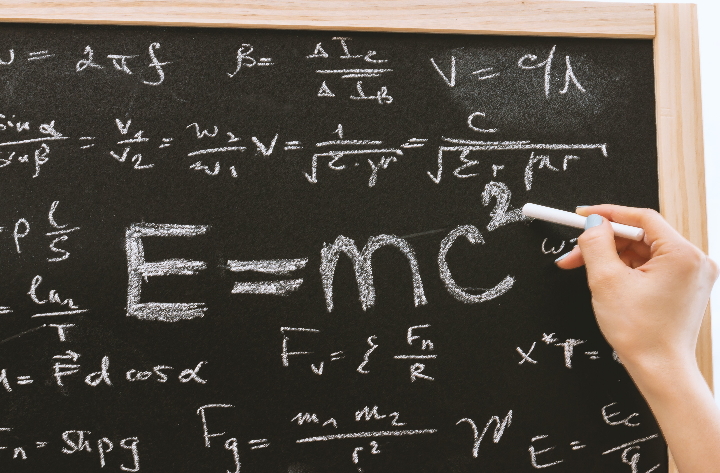 = 2πf β= ΔIc/ΔIB V = c/λ
sin α/sin β = v1/v2 = w2/w1 V = 1/√ε·μ = c/√εr μr
ρ l/S
E=mc²
ln2/T
Fv = ξ Fn/R x*T=
= F⃗ d cos α
Fn = shρg Fg = m1 m2/r² E = Ec/q